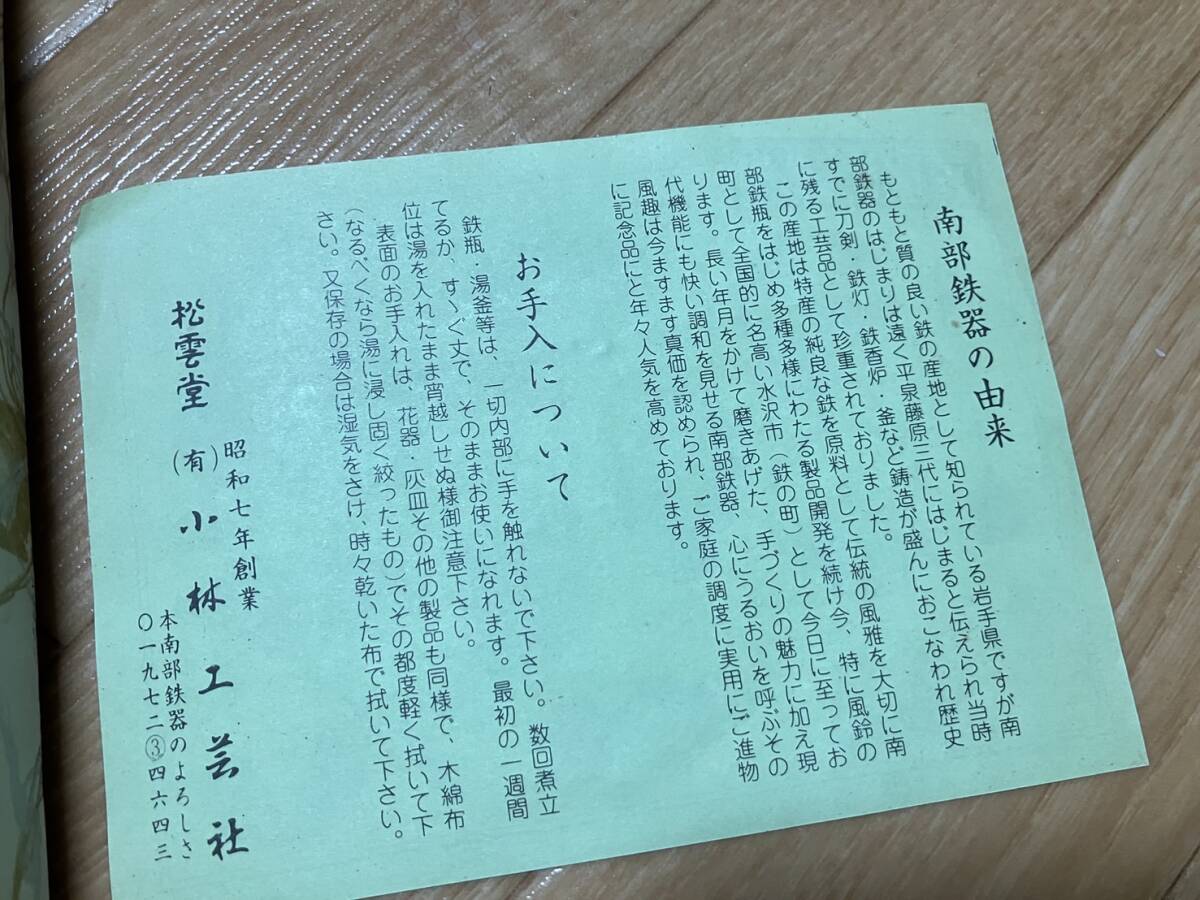 南部鉄器の由来
もともと質の良い鉄の産地として知られている岩手県ですが南
部鉄器のはじまりは遠く平泉藤原三代にはじまると伝えられ当時
すでに刀剣・鉄灯・鉄香炉・釜など鋳造が盛んにおこなわれ歴史
に残る工芸品として珍重されておりました。
この産地は特産の純良な鉄を原料として伝統の風雅を大切に南
部鉄瓶をはじめ多種多様にわたる製品開発を続け今、特に風鈴の
町として全国的に名高い水沢市（鉄の町）として今日に至ってお
ります。長い年月をかけて磨きあげた、手づくりの魅力に加え現
代機能にも快い調和を見せる南部鉄器、心にうるおいを呼ぶその
風趣は今ますます真価を認められ、ご家庭の調度に実用にご進物
に記念品にと年々人気を高めております。
お手入について
鉄瓶・湯釜等は、一切内部に手を触れないで下さい。数回煮立
てるか、すゝぐ丈で、そのままお使いになれます。最初の一週間
位は湯を入れたまま宵越しせぬ様御注意下さい。
表面のお手入れは、花器・灰皿その他の製品も同様で、木綿布
（なるべくなら湯に浸し固く絞ったもの）でその都度軽く拭いて下
さい。又保存の場合は湿気をさけ、時々乾いた布で拭いて下さい。
昭和七年創業
松雲堂 (有)小林工芸社
本南部鉄器のよろしさ
〇一九七二③四六四三